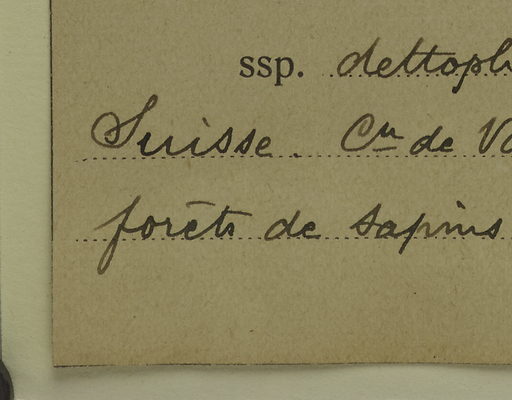 ssp. deltoph
Suisse. Cn de Va
forêts de sapins